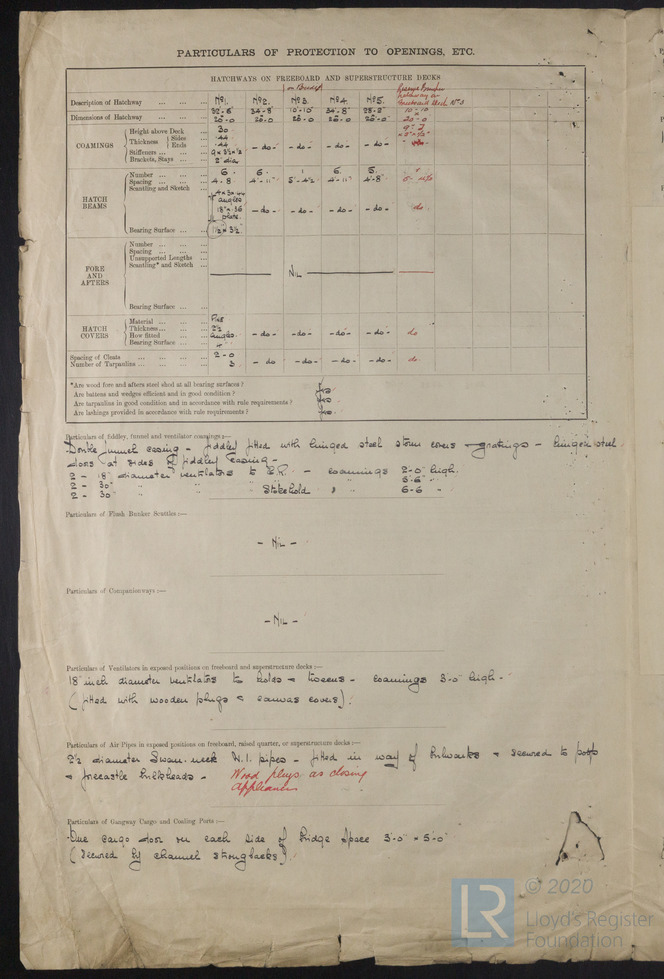 PARTICULARS OF PROTECTION TO OPENINGS, ETC.
HATCHWAYS ON FREEBOARD AND SUPERSTRUCTURE DECKS
Description of Hatchway ... ... ... Nº1. Nº2. Nº3. Nº4. Nº5.
Dimensions of Hatchway ... ... ... 34-8 10-10 34-8
26-0 26-0 26-0 26-0 26-0 20-0
COAMINGS
Height above Deck ... 30
Thickness Sides ... 44
Ends ... 44 - do - - do - - do - - do -
Stiffeners ... ... ...
Brackets, Stays ... ... 2" dia
HATCH BEAMS
Number ... ... ... 6. 6. 1 6. 5.
Spacing ... ... ... 4-8. 4-11" 5-4½ 4-11" 4-8
Scantling and Sketch
angles
plate - do - - do - - do - - do - do
Bearing Surface ... ...
FORE AND AFTERS
Number ... ... ...
Spacing ... ... ...
Unsupported Lengths ...
Scantling* and Sketch
NIL
Bearing Surface ... ...
HATCH COVERS
Material ... ... ...
Thickness ... ... ... 2½
How fitted ... ... - do - - do - - do - - do - do
Bearing Surface ... ...
Spacing of Cleats ... ... ... ... 2-0
Number of Tarpaulins ... ... ... 3 - do - do - - do - - do - do
*Are wood fore and afters steel shod at all bearing surfaces ?
Are battens and wedges efficient and in good condition ? yes
Are tarpaulins in good condition and in accordance with rule requirements ? yes
Are lashings provided in accordance with rule requirements ? yes
Particulars of fiddley, funnel and ventilator coamings :—
funnel casing - fiddley fitted with hinged steel storm covers gratings - hinged steel
doors at sides of fiddley casing -
2 - 18" diameter ventilators to E.R. - coamings 2-0 high.
2 - 30" " " " "
2 - 30" " " Stokehold " " 6-6 "
Particulars of Flush Bunker Scuttles :—
- NIL -
Particulars of Companionways :—
- NIL -
Particulars of Ventilators in exposed positions on freeboard and superstructure decks :—
18 inch diameter ventilators to holds & tweens - coamings 3-0 high -
(fitted with wooden plugs & canvas covers).
Particulars of Air Pipes in exposed positions on freeboard, raised quarter, or superstructure decks :—
2½ diameter Swan-neck W.I. pipes - fitted in way of bulwarks & secured to poop
& forecastle bulkheads - Wood plugs as closing
appliances
Particulars of Gangway Cargo and Coaling Ports :—
One cargo door on each side of Bridge space 3-0" × 5-0"
(secured by channel strongbacks).
LR
© 2020
Lloyd's Register
Foundation